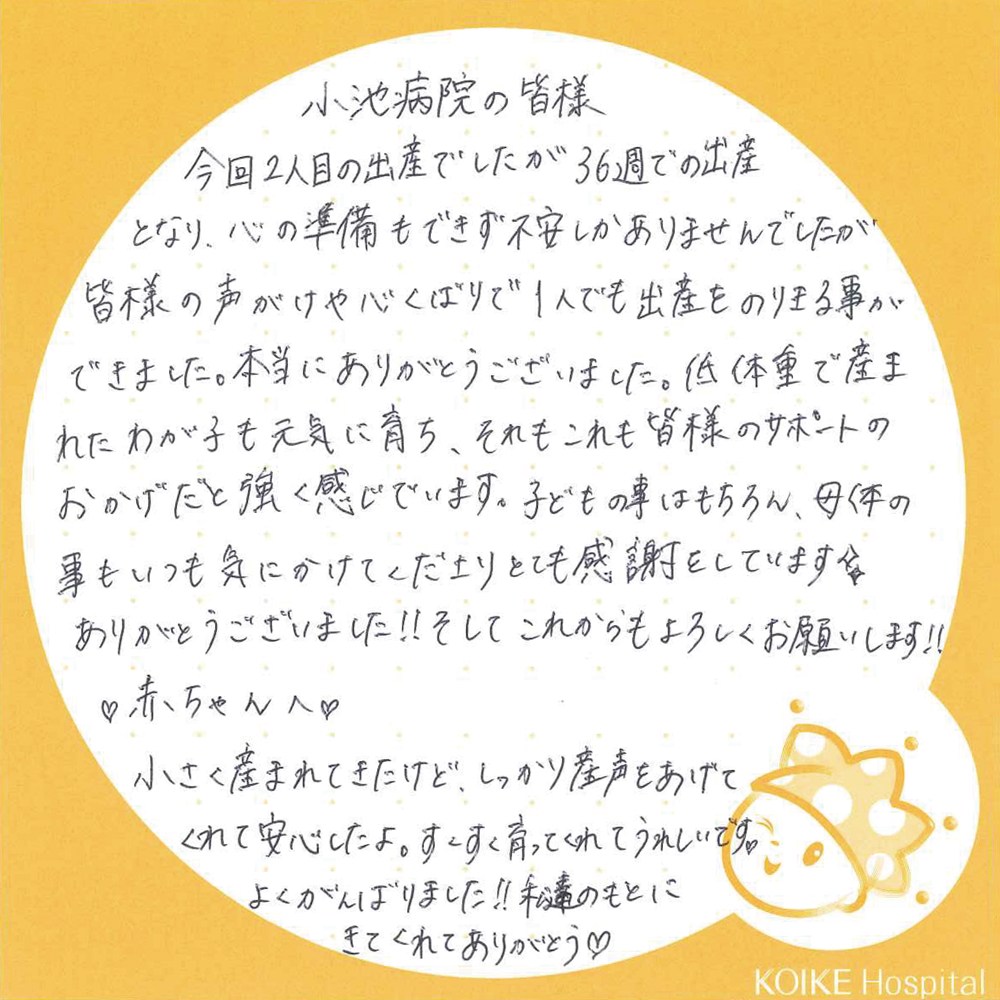 小池病院の皆様
今回2人目の出産でしたが36週での出産
となり、心の準備もできず不安しかありませんでしたが
皆様の声がけや心くばりで1人でも出産をのりきる事が
できました。本当にありがとうございました。低体重で産ま
れたわが子も元気に育ち、それもこれも皆様のサポートの
おかげだと強く感じでいます。子どもの事はもちろん、母体の
事もいつも気にかけてくださりとても感謝をしています☆
ありがとうございました!!そしてこれからもよろしくお願いします!!
♡赤ちゃんへ♡
小さく産まれてきたけど、しっかり産声をあげて
くれて安心したよ。すくすく育ってくれてうれしいです。
よくがんばりました!!私達のもとに
きてくれてありがとう♡
KOIKE Hospital